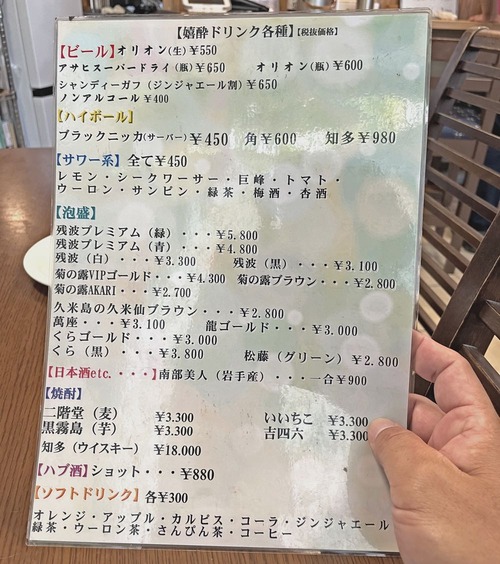 【嬉酔ドリンク各種】【税抜価格】
【ビール】オリオン(生)￥550
アサヒスーパードライ(瓶)￥650 オリオン(瓶)￥600
シャンディーガフ(ジンジャエール割)￥650
ノンアルコール￥400
【ハイボール】
ブラックニッカ(サーバー)￥450 角￥600 知多￥980
【サワー系】全て￥450
レモン・シークワーサー・巨峰・トマト・
ウーロン・サンピン・緑茶・梅酒・杏酒
【泡盛】
残波プレミアム（緑）・・・￥5.800
残波プレミアム（青）・・・￥4.800
残波（白）・・・￥3.300 残波（黒）・・・￥3.100
菊の露VIPゴールド・・・￥4.300 菊の露ブラウン・・・￥2.800
菊の露AKARI・・・￥2.700
久米島の久米仙ブラウン・・・￥2.800
萬座・・・￥3.100 龍ゴールド・・・￥3.000
くらゴールド・・・￥3.000
くら（黒）・・・￥3.800 松藤（グリーン）￥2.800
【日本酒etc.・・・・】南部美人（岩手産）・・・一合￥900
【焼酎】
二階堂（麦） ￥3.300 いいちこ ￥3.300
黒霧島（芋） ￥3.300 吉四六 ￥3.300
知多（ウイスキー） ￥18.000
【ハブ酒】ショット・・・￥880
【ソフトドリンク】各￥300
オレンジ・アップル・カルピス・コーラ・ジンジャエール
緑茶・ウーロン茶・さんぴん茶・コーヒー